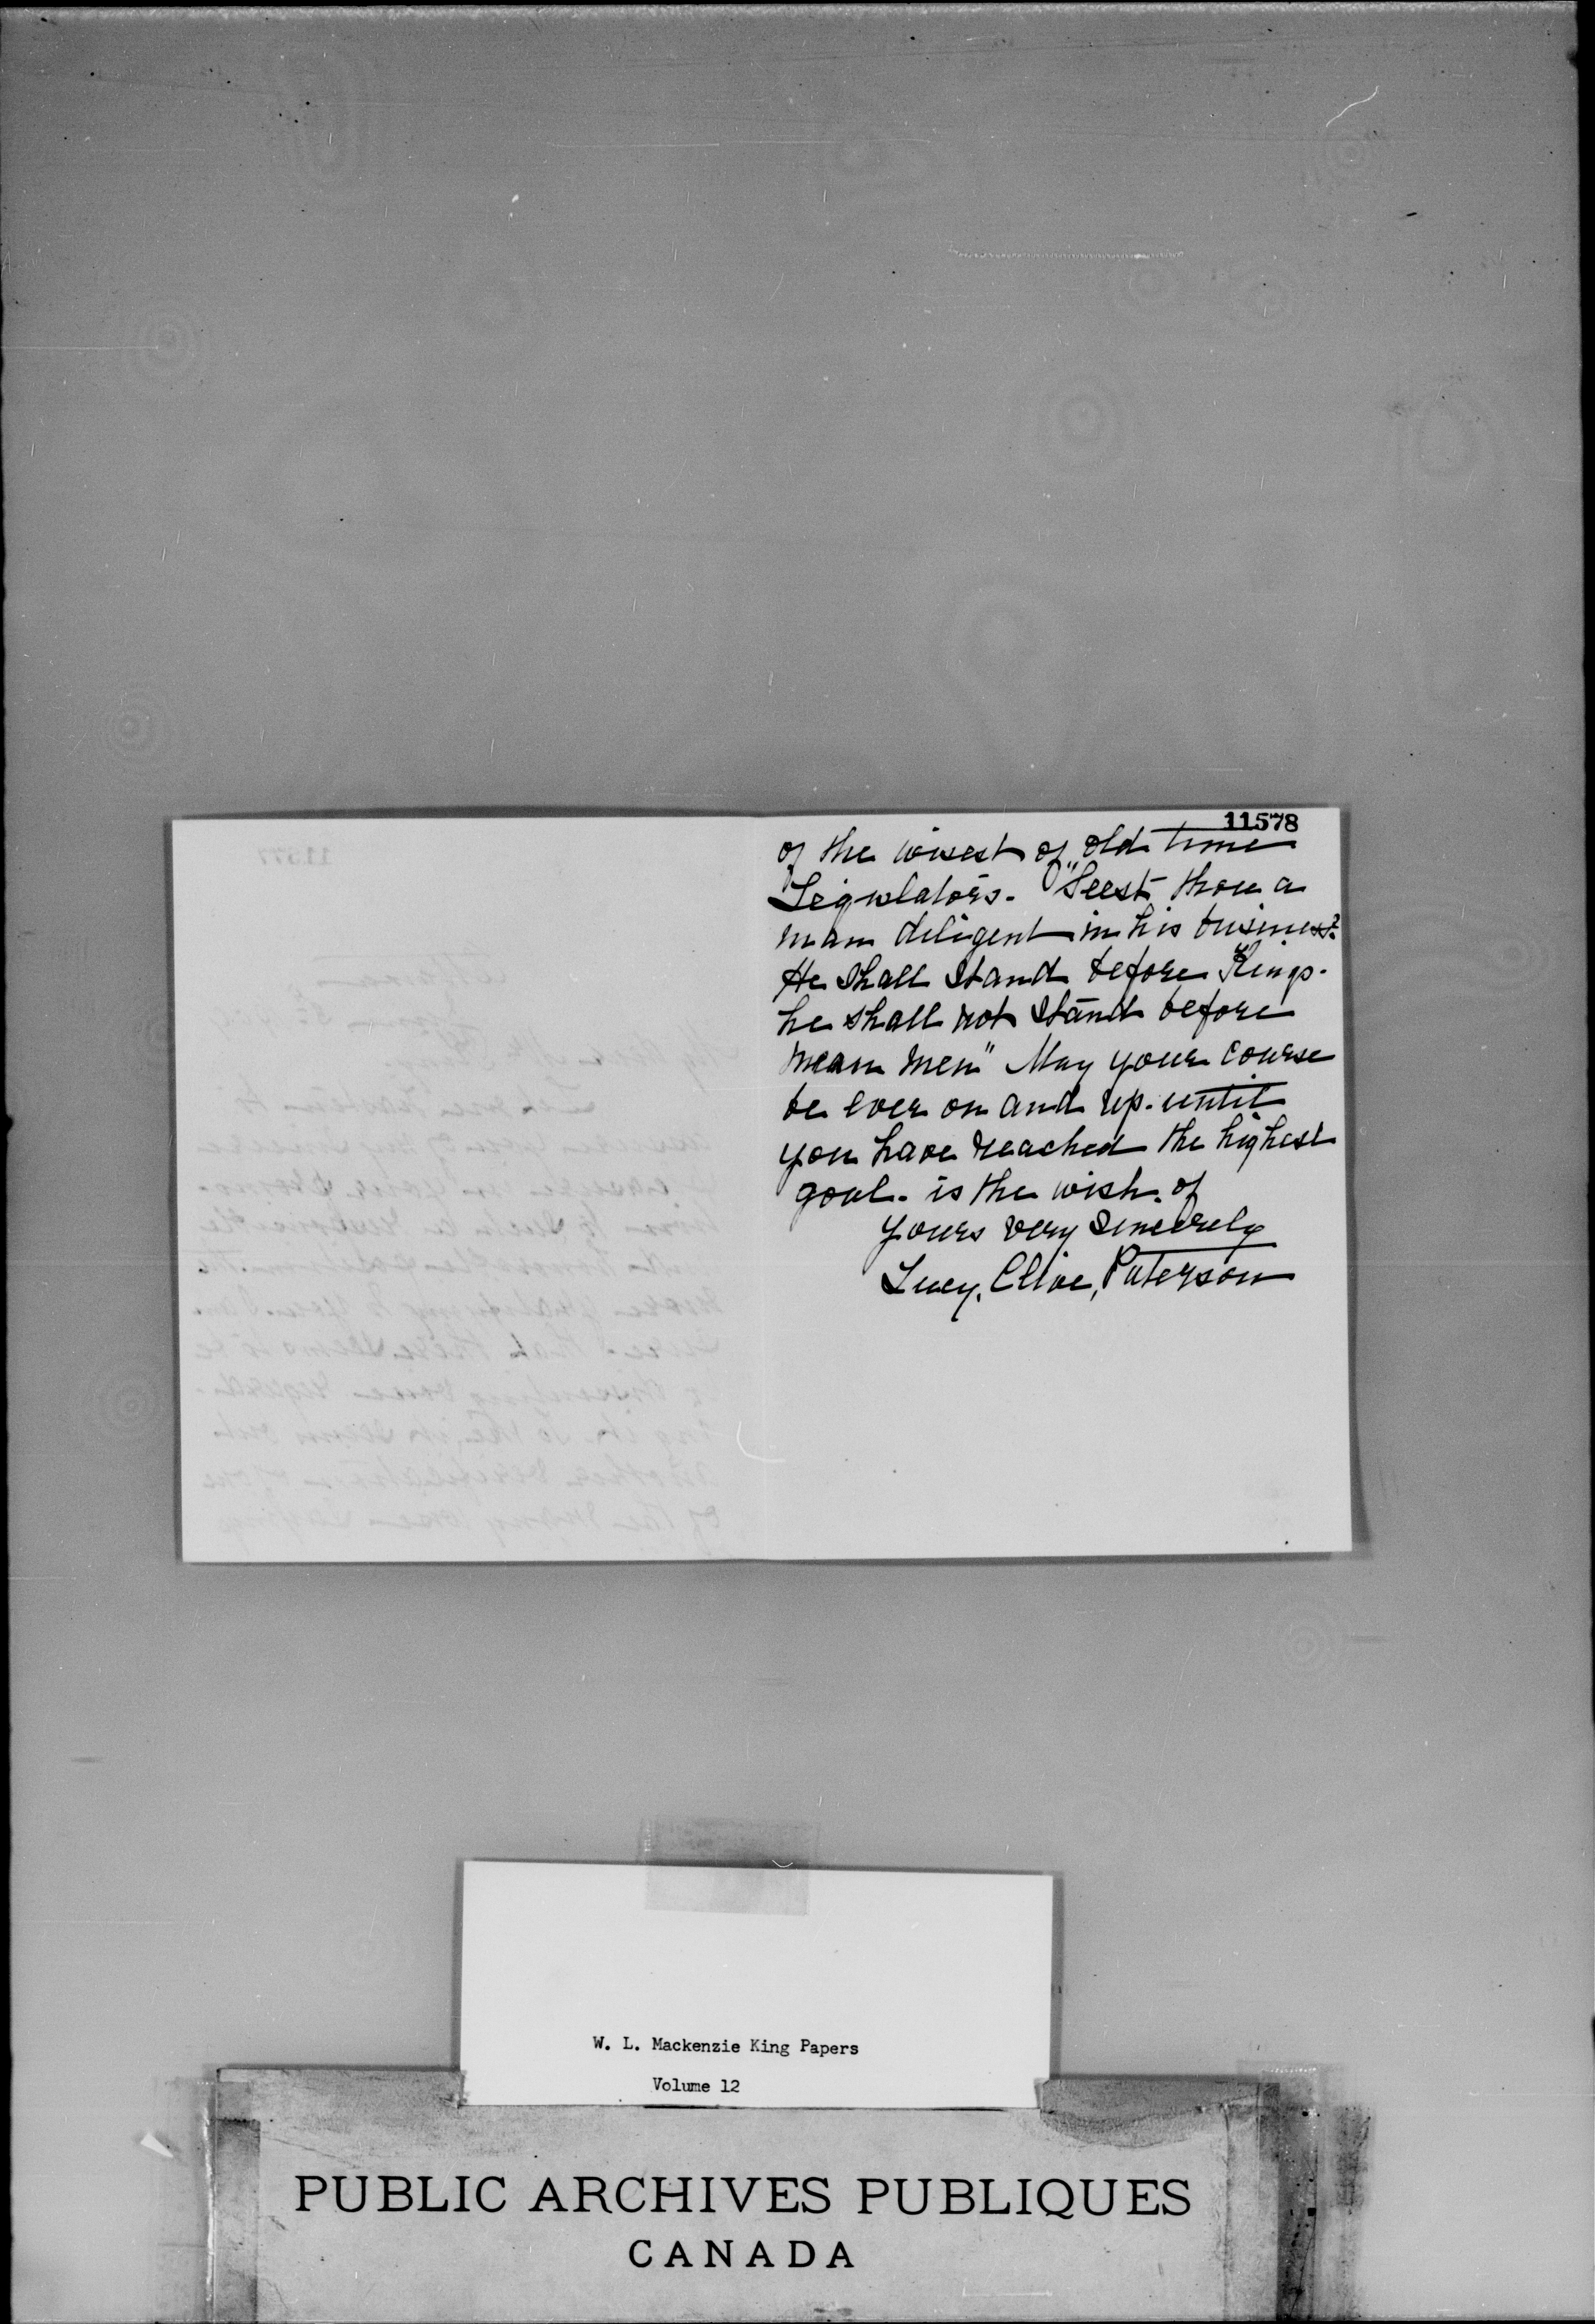 11578
of the wisest of old time
Legislators. "Seest thou a
man diligent in his business?
He shall stand before Kings.
he shall not stand before
mean men" May your course
be ever on and up. until
you have reached the highest
goal. is the wish. of
yours very sincerely
Lucy, Clive, Paterson
W. L. Mackenzie King Papers
Volume 12
PUBLIC ARCHIVES PUBLIQUES
CANADA